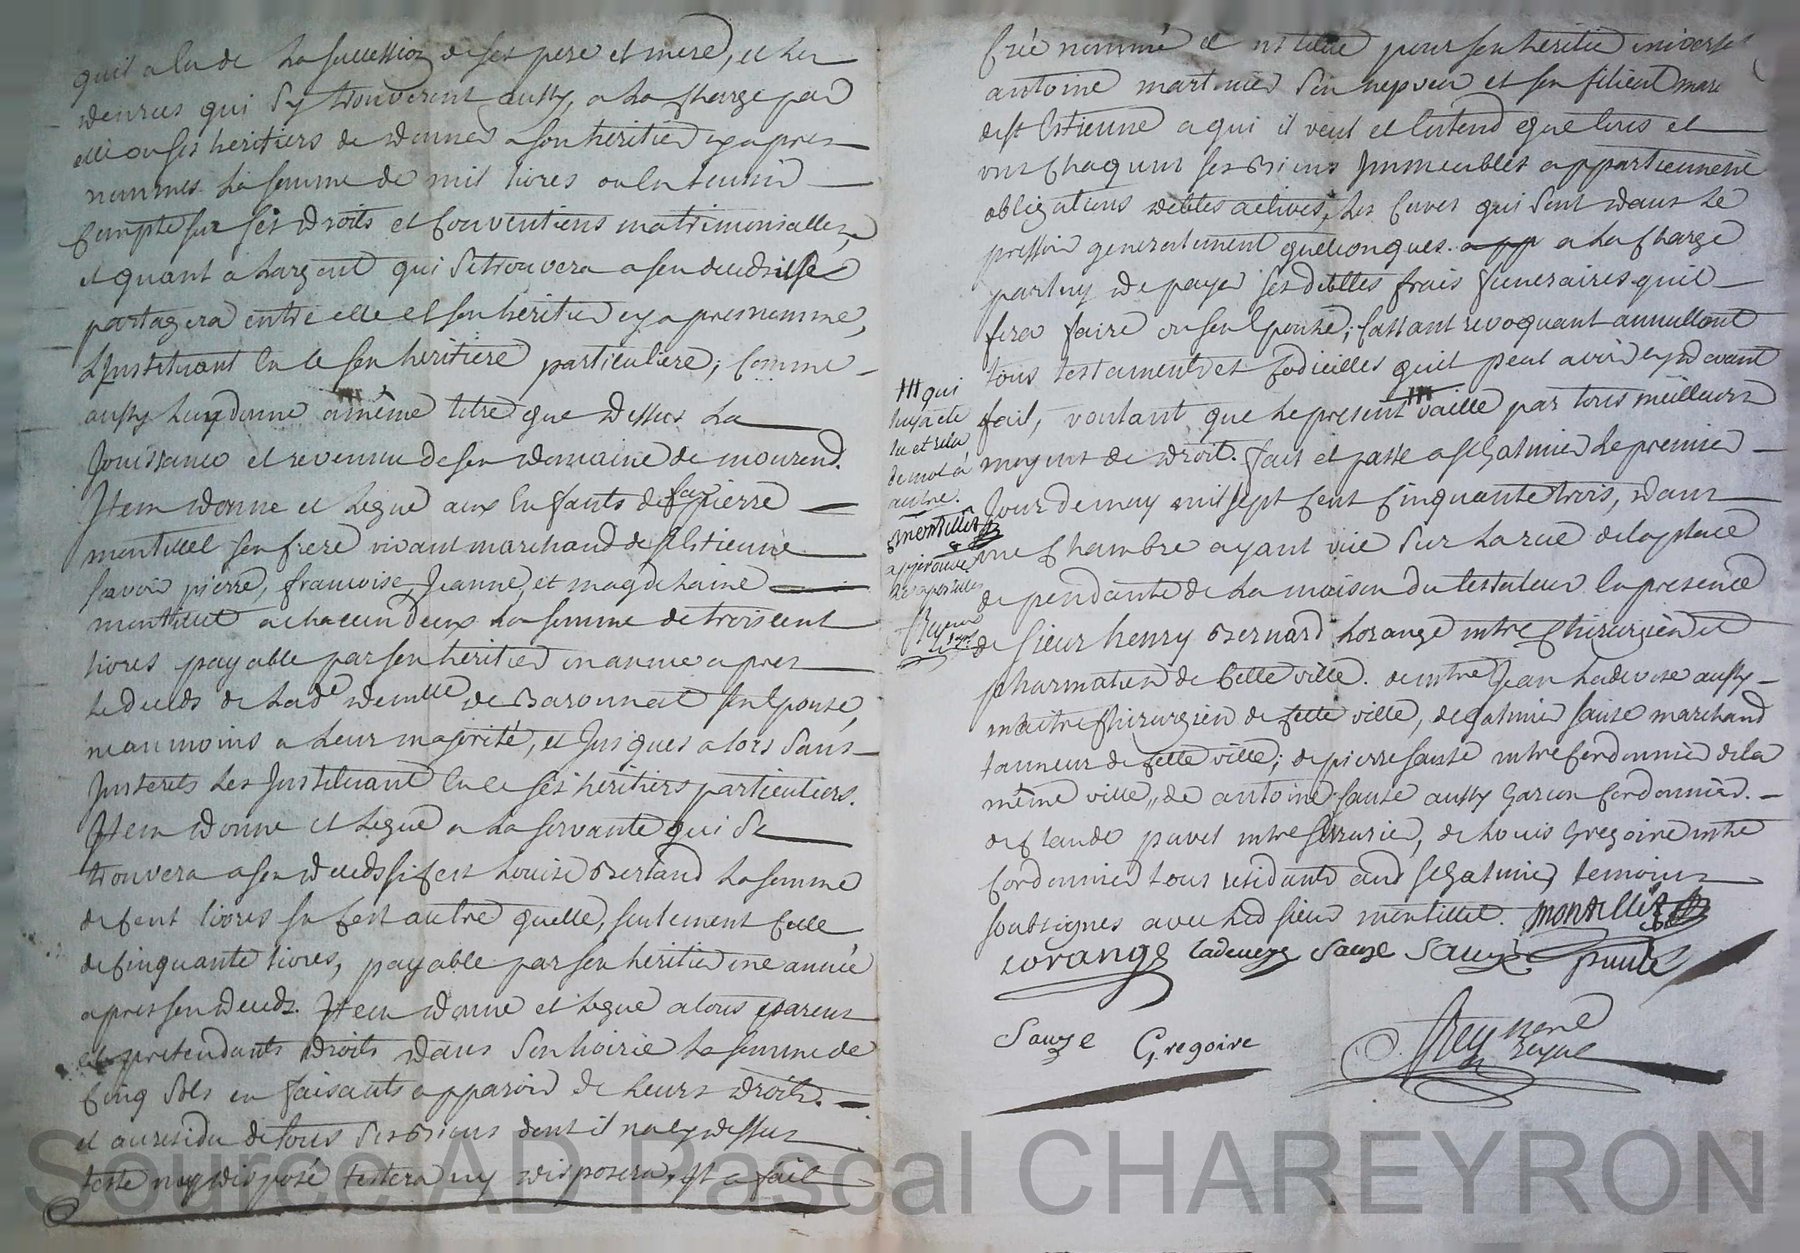 quil a lu de la succession de ses pere et mere, et les
denrées qui s'y trouveront aussy, a la charge par
elle ou ses heritiers de donner a son heritier cy apres
nommés la somme de mil livres ou la tenir
compte sur ses droits et conventions matrimonialles,
et quant a largent qui se trouvera a son deceds il se
partagera entre elle et son heritier cy apres nommé,
Linstituant en ce son heritiere particuliere; comme
aussy luy donne a même titre que dessus la
Jouissance et revenu de son domaine de mourend.
Item donne et legue aux Enfants de feu pierre
montillet son frere vivant marchand de st Estienne
savoir pierre, francoise, Jeanne, et magdelaine
montillet a chacun deux la somme de trois cent
livres payable par son heritier un année apres
le deceds de lad.e demlle de Baronnat son Epouse,
neanmoins a leur majorité, et Jusques alors sans
Justerets les Instituant en ce ses heritiers particuliers.
Item donne et legue a la servante qui se
trouvera a son deceds si cest Louise Bertand la somme
de cent livres si cest autre quelle, seulement celle
de cinquante livres, payable par son heritier une année
apres son deceds. Item donne et legue a tous parens
et pretendants droits dans son hoirie la somme de
cinq sols en faisants apparoir de leurs droits.
et au residu de tous ses Biens dont il na cy dessus
testé ny disposé testera ny disposera, Il a fait
Créé nommé et institue pour son heritier universel
antoine martinier son nepveu et son filieul mar
de st Estienne a qui il veut et Entend que tous et
uns chaquuns ses Biens Immeubles appartiennent
obligations debtes actives, les cuves qui sont dans le
pressoir generalement quelconques. app a la charge
par luy de payer ses debttes frais funeraires quil
fera faire ou son Epouse; cassant revoquant annullant
tous testaments et codicilles quil peut avoir cy devant
fait, voulant que le present vaille par tous meilleurs
moyens de droit. fait et passé a st Galmier le premier
Jour de may mil sept cent cinquante trois, dans
une chambre ayant vüe sur la rue de la place
dependante de la maison du testateur En presence
de sieur henry Bernard Lorange mtre chirurgien et
pharmatien de cette ville. de mtre Jean Ladeveze aussy
maitre chirurgien de cette ville, de galmier sauze marchand
tanneur de cette ville; de pierre sauze mtre cordonnier de la
même ville, de antoine sauze aussy garcon cordonnier.
de claude puvel mtre serrurier, de Louis Gregoire mtre
cordonnier tous residants aud st Galmier temoins
soubsignes avec led sieur montillet. montillet
Lorange Ladeveze Sauze Sauze
Sauze Gregoire
qui
luy a eté
lu et relu
de mot à
autre.
montillet
approuvé
Source AD Pascal CHAREYRON